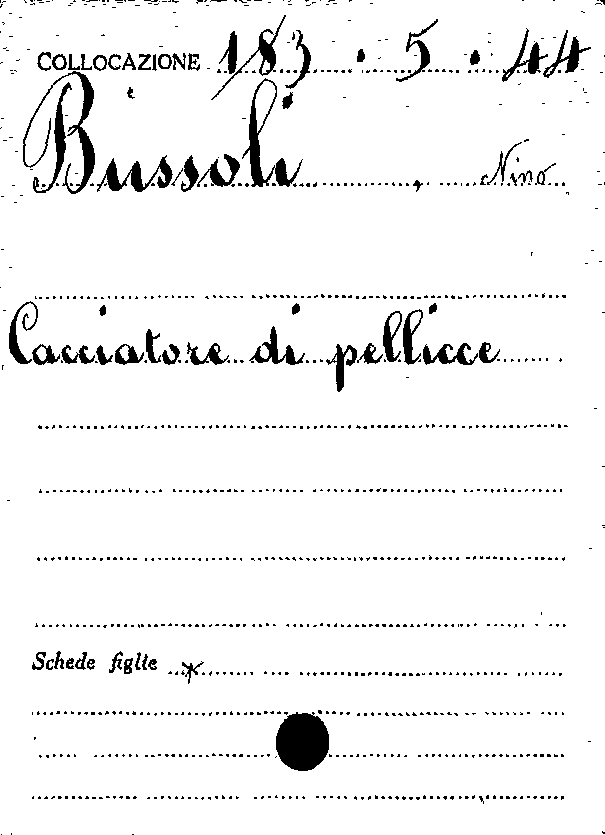 COLLOCAZIONE 183.5.44
Bussoli, Nino
Cacciatore di pellicce
Schede figlie *